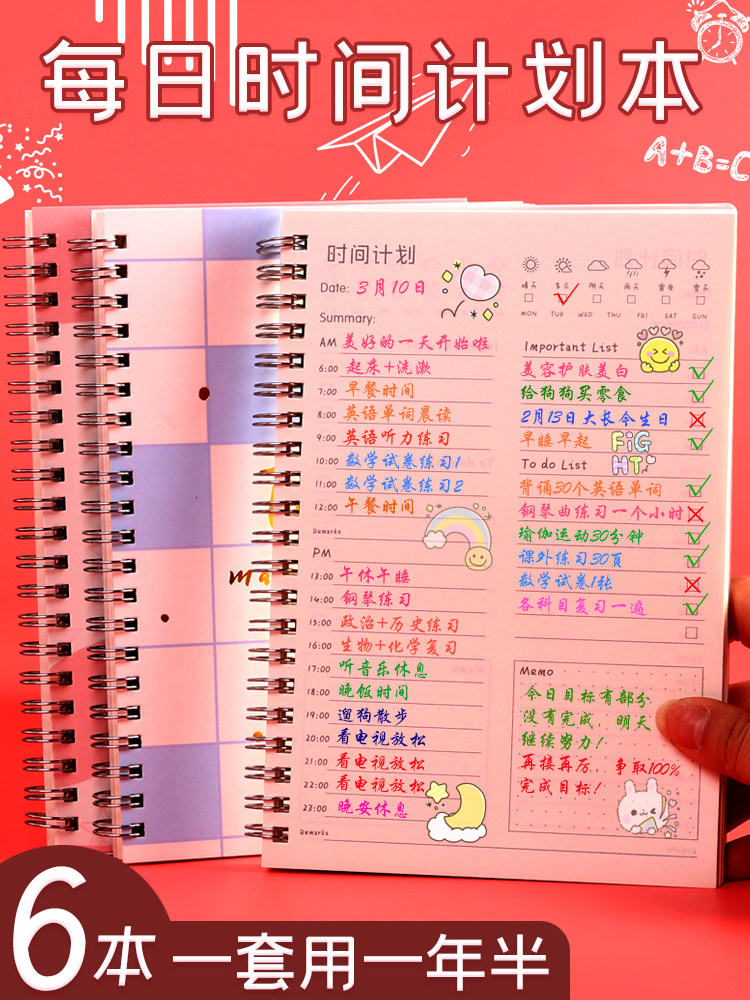 每日时间计划本
A+B=C
时间计划
Date: 3月10日
晴天 多云 阴天 雨天 雷电 雪天
MON TUE WED THU FRI SAT SUN
Summary:
AM 美好的一天开始啦
6:00 起床+洗漱
7:00 早餐时间
8:00 英语单词晨读
9:00 英语听力练习
10:00 数学试卷练习1
11:00 数学试卷练习2
12:00 午餐时间
Remarks
PM
13:00 午休午睡
14:00 钢琴练习
15:00 政治+历史练习
16:00 生物+化学复习
17:00 听音乐休息
18:00 晚饭时间
19:00 遛狗散步
20:00 看电视放松
21:00 看电视放松
22:00 看电视放松
23:00 晚安休息
Remarks
Important List
美容护肤美白
给狗狗买零食
2月13日大长今生日
早睡早起
FiGHT
To do List
背诵30个英语单词
钢琴曲练习一个小时
瑜伽运动30分钟
课外练习30頁
数学试卷1张
各科目复习一遍
Memo
今日目标有部分
没有完成，明天
继续努力！
再接再厉，争取100%
完成目标！
ma
6本一套用一年半